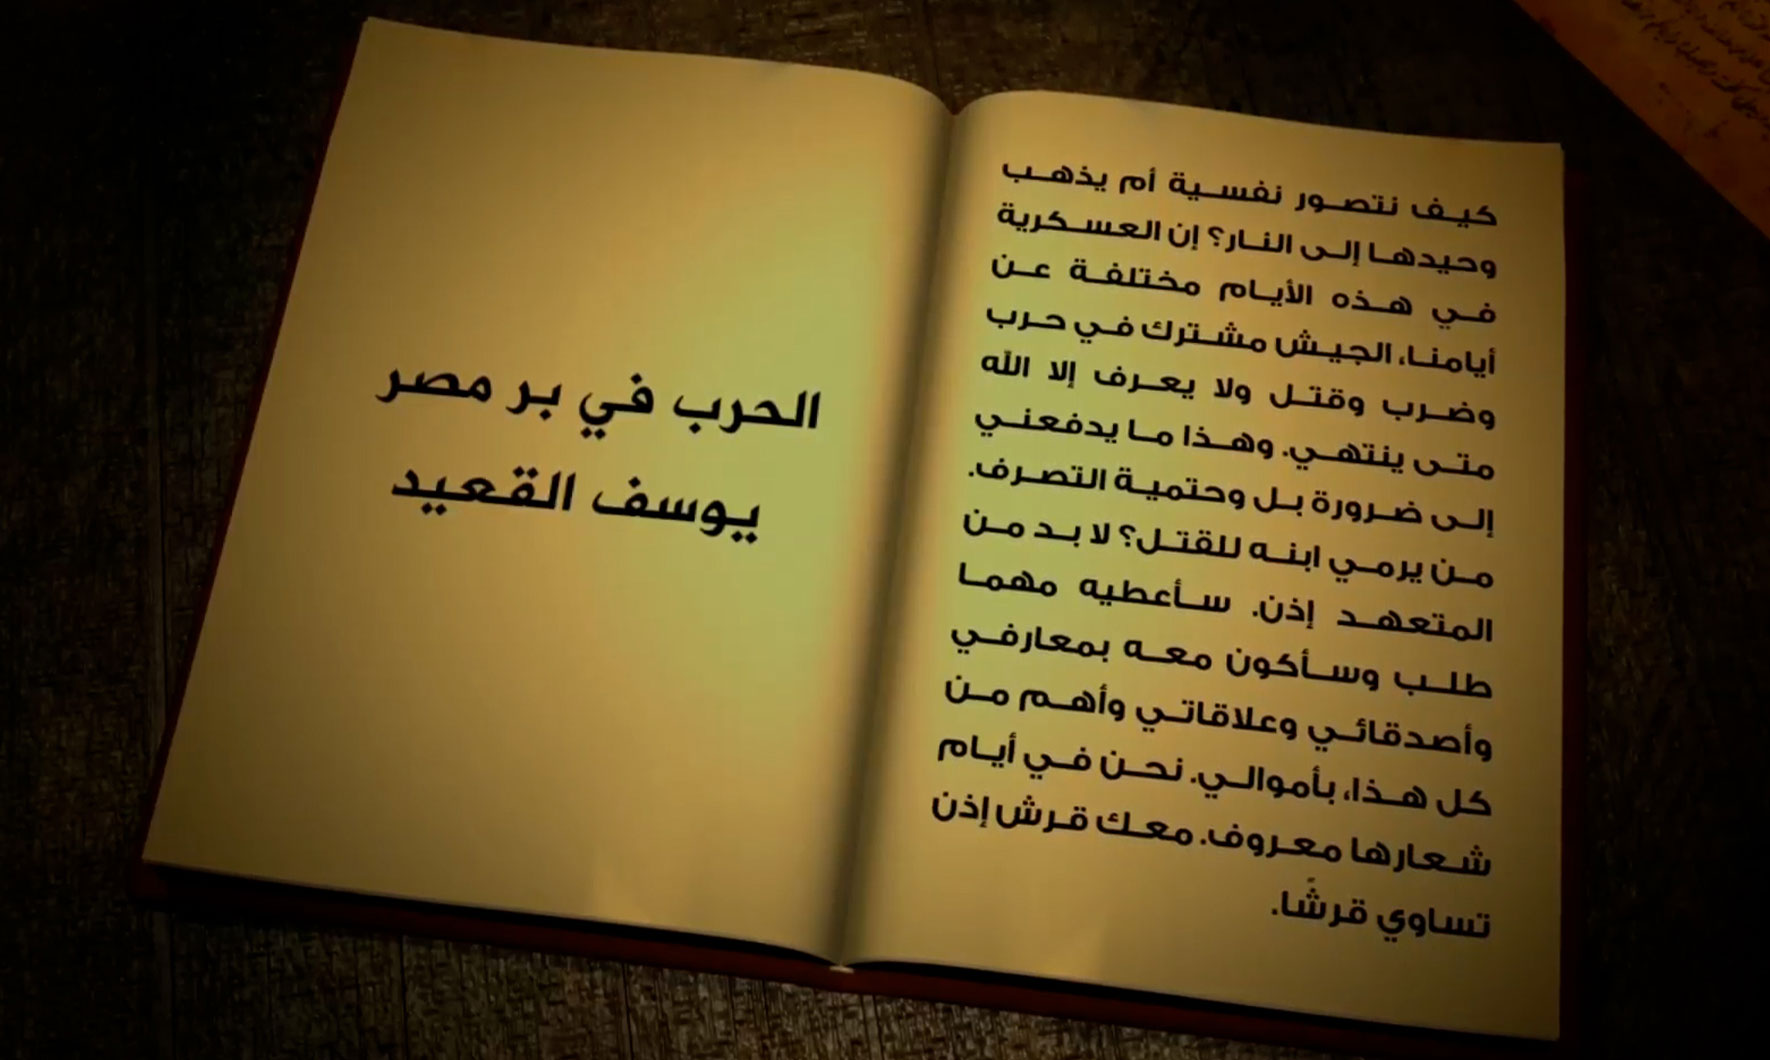 كيف نتصور نفسية أم يذهب
وحيدها إلى النار؟ إن العسكرية
في هذه الأيام مختلفة عن
أيامنا، الجيش مشترك في حرب
وضرب وقتل ولا يعرف إلا الله
متى ينتهي. وهذا ما يدفعني
إلى ضرورة بل وحتمية التصرف.
من يرمي ابنه للقتل؟ لا بد من
المتعهد إذن. سأعطيه مهما
طلب وسأكون معه بمعارفي
وأصدقائي وعلاقاتي وأهم من
كل هذا، بأموالي. نحن في أيام
شعارها معروف. معك قرش إذن
تساوي قرشًا.
الحرب في بر مصر
يوسف القعيد